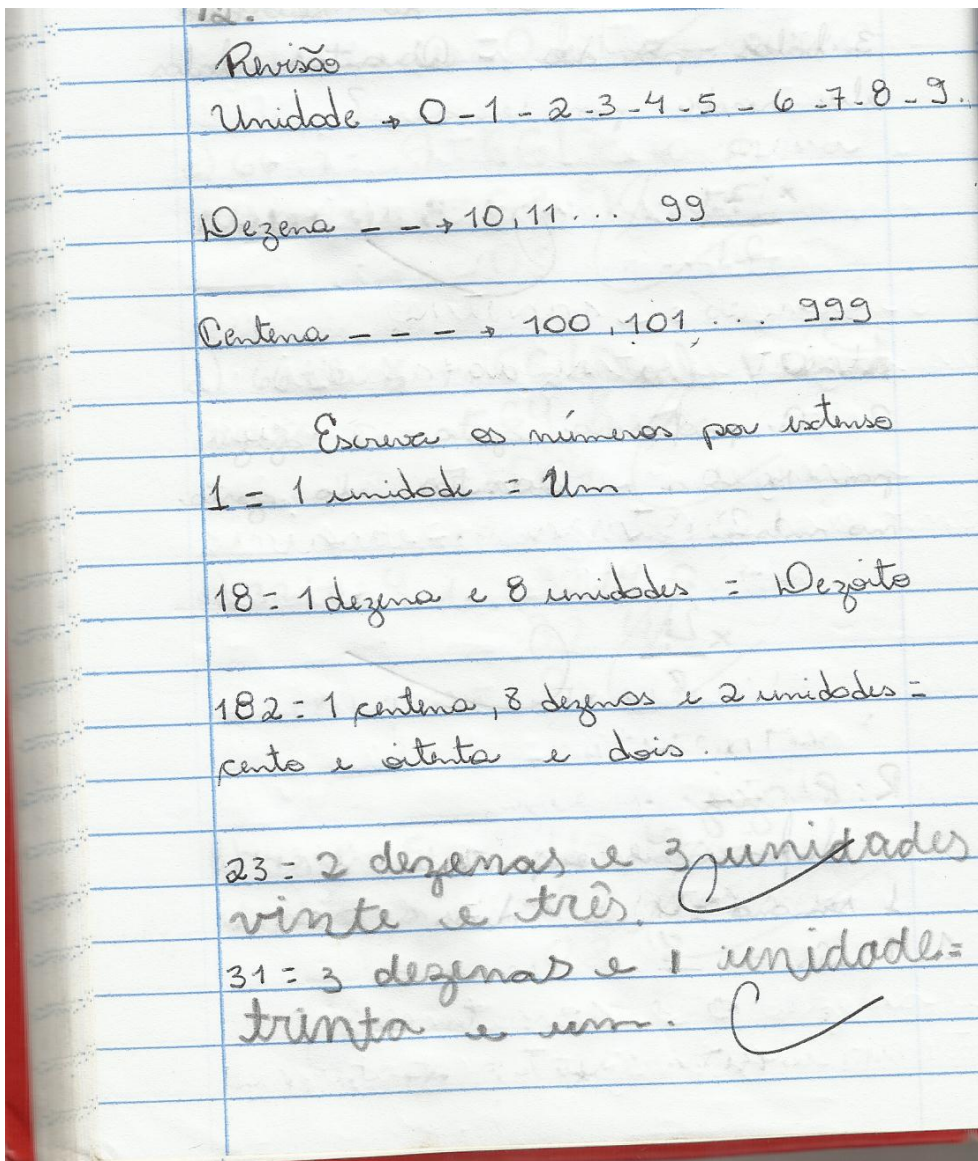 12.
Revisão
Unidade → 0 - 1 - 2 - 3 - 4 - 5 - 6 - 7 - 8 - 9.
Dezena - - → 10, 11 . . . 99
Centena - - - → 100, 101, . . . 999
Escreva os números por extenso
1 = 1 unidade = Um
18 = 1 dezena e 8 unidades = Dezoito
182 = 1 centena, 8 dezenas e 2 unidades =
cento e oitenta e dois.
23 = 2 dezenas e 3 unidades
vinte e três.
31 = 3 dezenas e 1 unidade =
trinta e um.